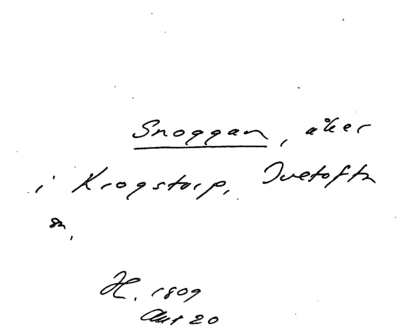 Snoggan, åker
i Krogstorp, Ivetofta
sn.
H. 1809
Akt 20